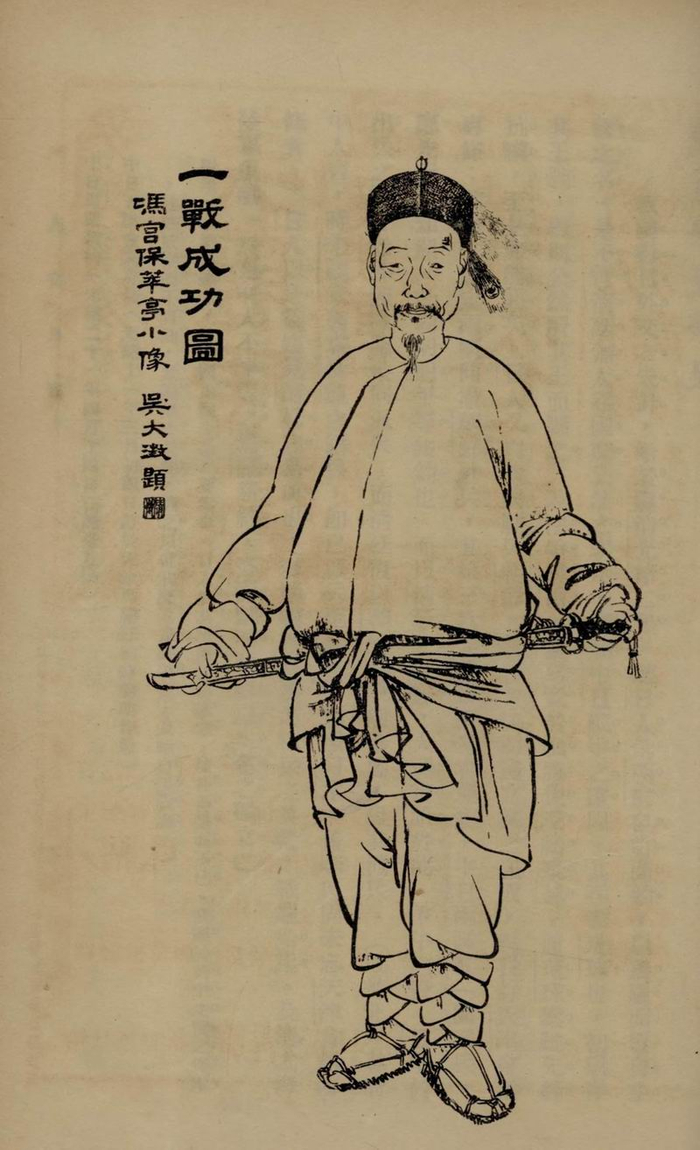 一戰成功圖
馮宮保萃亭小像 吳大澂題